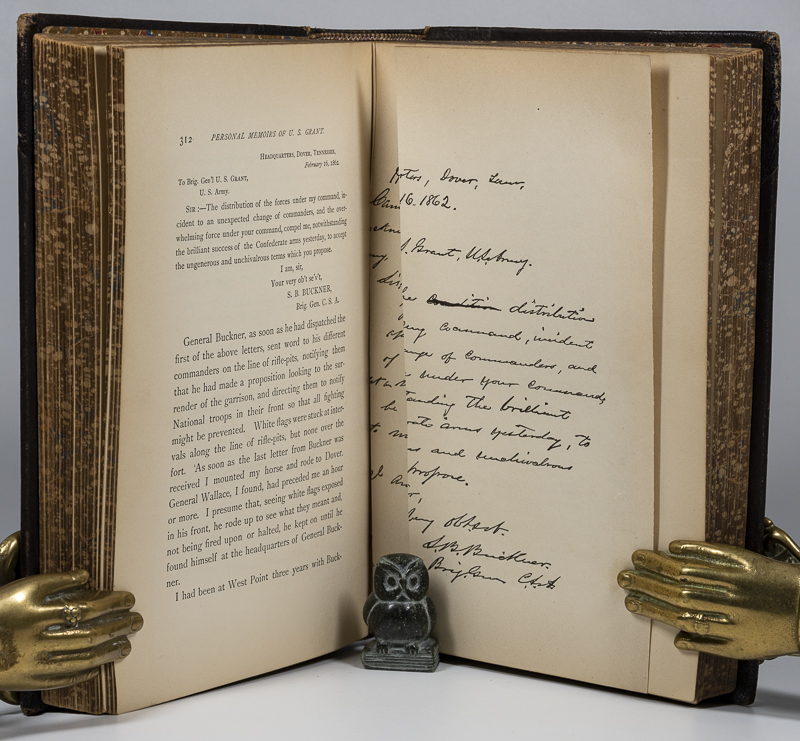 312 PERSONAL MEMOIRS OF U. S. GRANT.
HEADQUARTERS, DOVER, TENNESSEE,
February 16, 1862.
To Brig. Gen'l U. S. GRANT,
U. S. Army.
SIR:—The distribution of the forces under my command, in-
cident to an unexpected change of commanders, and the over-
whelming force under your command, compel me, notwithstanding
the brilliant success of the Confederate arms yesterday, to accept
the ungenerous and unchivalrous terms which you propose.
I am, sir,
Your very ob't se'v't,
S. B. BUCKNER,
Brig. Gen. C. S. A.
General Buckner, as soon as he had dispatched the
first of the above letters, sent word to his different
commanders on the line of rifle-pits, notifying them
that he had made a proposition looking to the sur-
render of the garrison, and directing them to notify
National troops in their front so that all fighting
might be prevented. White flags were stuck at inter-
vals along the line of rifle-pits, but none over the
fort. As soon as the last letter from Buckner was
received I mounted my horse and rode to Dover.
General Wallace, I found, had preceded me an hour
or more. I presume that, seeing white flags exposed
in his front, he rode up to see what they meant and,
not being fired upon or halted, he kept on until he
found himself at the headquarters of General Buck-
ner.
I had been at West Point three years with Buck-
Dover, Tenn,
16. 1862.
Grant, U.S. Army.
distribution
command, incident
of commanders, and
under your command,
the brilliant
arms yesterday, to
and unchivalrous
propose.
obt. svt.
S. B. Buckner.
Brig. Gen C.S.A